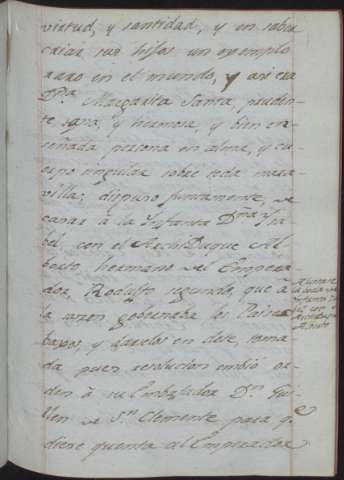 virtud, y santidad, y en saber
criar sus hijos un exemplo
raro en el mundo, y asi era
D.ña Margarita Santa, pruden-
te sana, y hermosa, y bien en-
señada persona en alma, y cu-
erpo singular sobre toda mara-
villa; dispuso juntamente, de
casar à la Ynfanta D.ña Ysa-
bel, con el ArchiDuque Al-
berto, hermano del Empera-
dor Rodulfo segundo, que à
la sazon gobernaba los Paises
bajos, y darlos en dote, toma-
da pues resolucion embió or-
den à su Embajador D.n Gui-
llen de S.n Clemente para q.e
diese quenta al Emperador
la Ynfanta
con el
Archiduque
Alberto